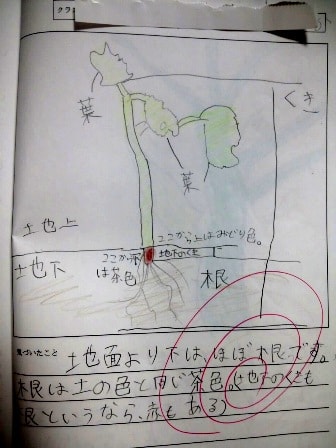 くき
葉
葉
土地上
ここから上はみどり色。
ここから下
は茶色
地下のくき
土地下
根
気づいたこと
地面より下は、ほぼ根です。
根は土の色と同じ茶色。(地下のくきも
根というなら、赤もある)